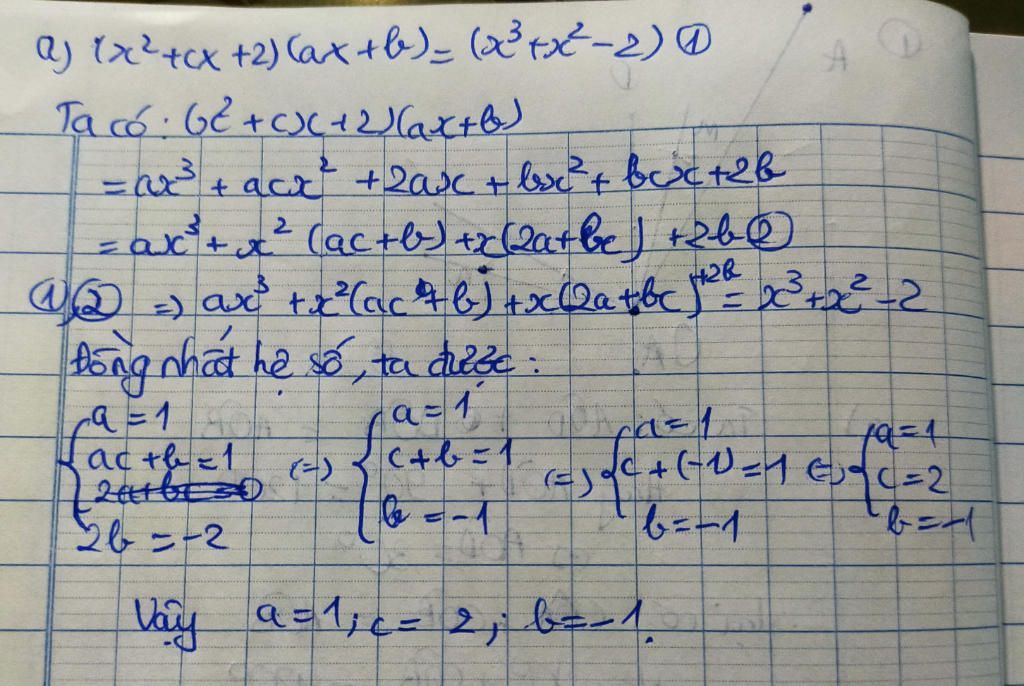 a) (x²+cx+2)(ax+b)=(x³+x²-2) ①
Ta có: (x²+cx+2)(ax+b)
=ax³+acx²+2ax+bx²+bcx+2b
=ax³+x²(ac+b)+x(2a+bc)+2b ②
①,② => ax³+x²(ac+b)+x(2a+bc)+2b=x³+x²-2
Đồng nhất hệ số, ta được:
{a=1 {a=1 {a=1 {a=1
ac+b=1 (=) c+b=1 (=) c+(-1)=1 (=) c=2
2a+bc=0
2b=-2 b=-1 b=-1 b=-1
Vậy a=1; c=2; b=-1.